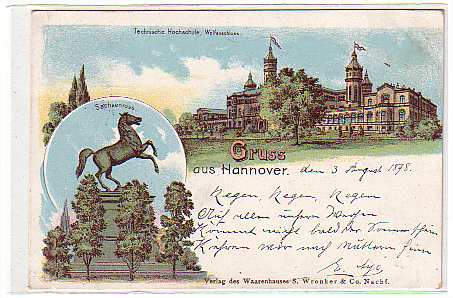 Technische Hochschule, Welfenschloss.
Sachsenross
Gruss
aus Hannover.
den 3 August 1898.
Regen, Regen, Regen
Auf allen unsren Wegen
Kommt nicht bald der Sonnenschein
Fahren wir nach Muttern heim
Verlag des Waarenhauses S. Wronker & Co. Nachf.